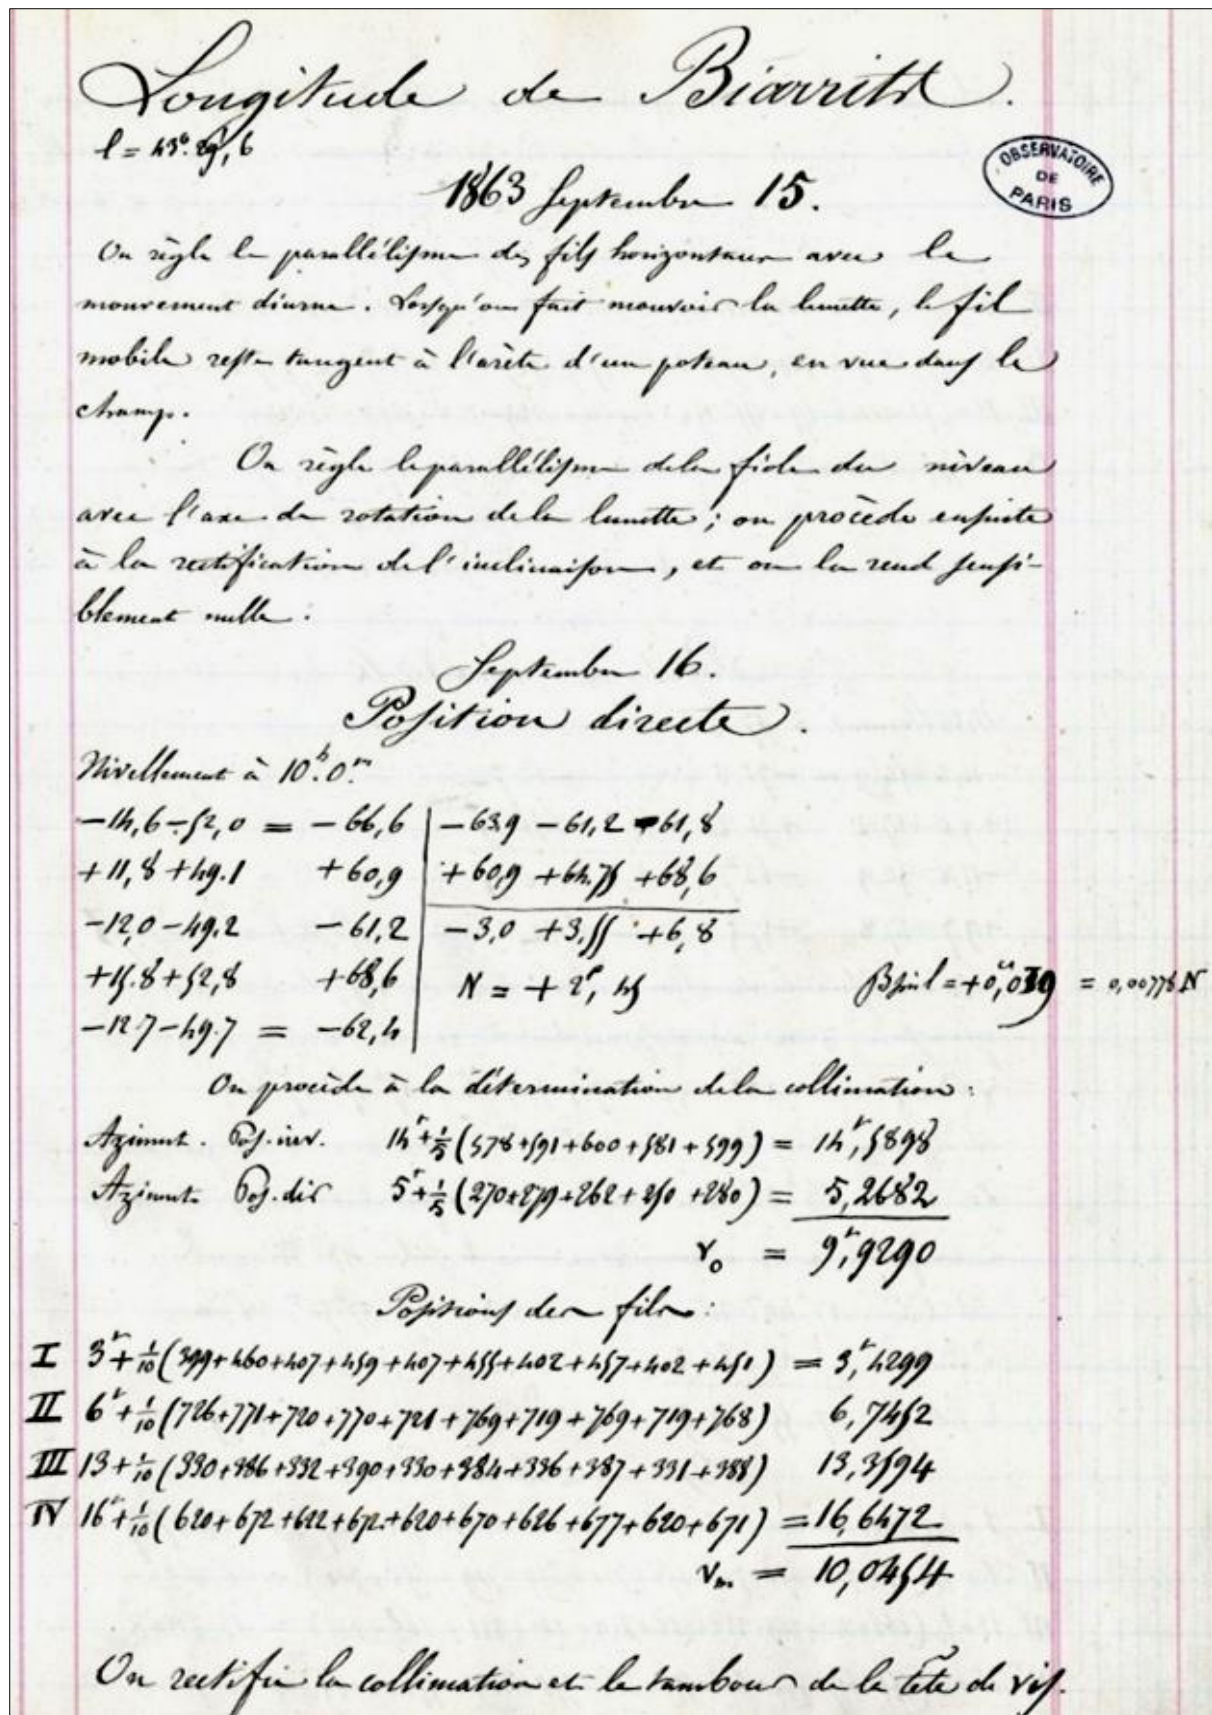 Longitude de Biarritz.
l = 43°.29',6
OBSERVATOIRE DE PARIS
1863 Septembre 15.
On règle le parallélisme des fils horizontaux avec le
mouvement diurne. Lorsqu'on fait mouvoir la lunette, le fil
mobile reste tangent à l'arète d'un poteau, en vue dans le
champ.
On règle le parallélisme de la fiole du niveau
avec l'axe de rotation de la lunette ; on procède ensuite
à la rectification de l'inclinaison, et on la rend sensi-
blement nulle.
Septembre 16.
Position directe.
Nivellement à 10h.0m
−14,6−52,0 = −66,6 | −63.9 −61,2 −61,8
+11,8+49.1 +60,9 | +60,9 +64.75 +68,6
−12,0−49.2 −61,2 | −3,0 +3,55 +6,8
+15.8+52,8 +68,6 N = +2p,45 = 0,00778N
−12.7−49.7 = −62,4
On procède à la détermination de la collimation :
Azimut. Pos. inv. 14r+1/5(578+591+600+581+599) = 14r,5898
Azimut Pos. dir 5r+1/5(270+279+262+250+280) = 5,2682
v0 = 9r,9290
Positions des fils :
I 3r+1/10(399+460+407+459+407+455+402+457+402+451) = 3r,4299
II 6r+1/10(726+771+720+770+721+769+719+769+719+768) 6,7452
III 13+1/10(330+386+332+390+330+384+336+387+331+388) 13,3594
IV 16r+1/10(620+672+622+672+620+670+626+677+620+671) = 16,6472
vm = 10,0454
On rectifie la collimation et le tambour de la tête de vis.